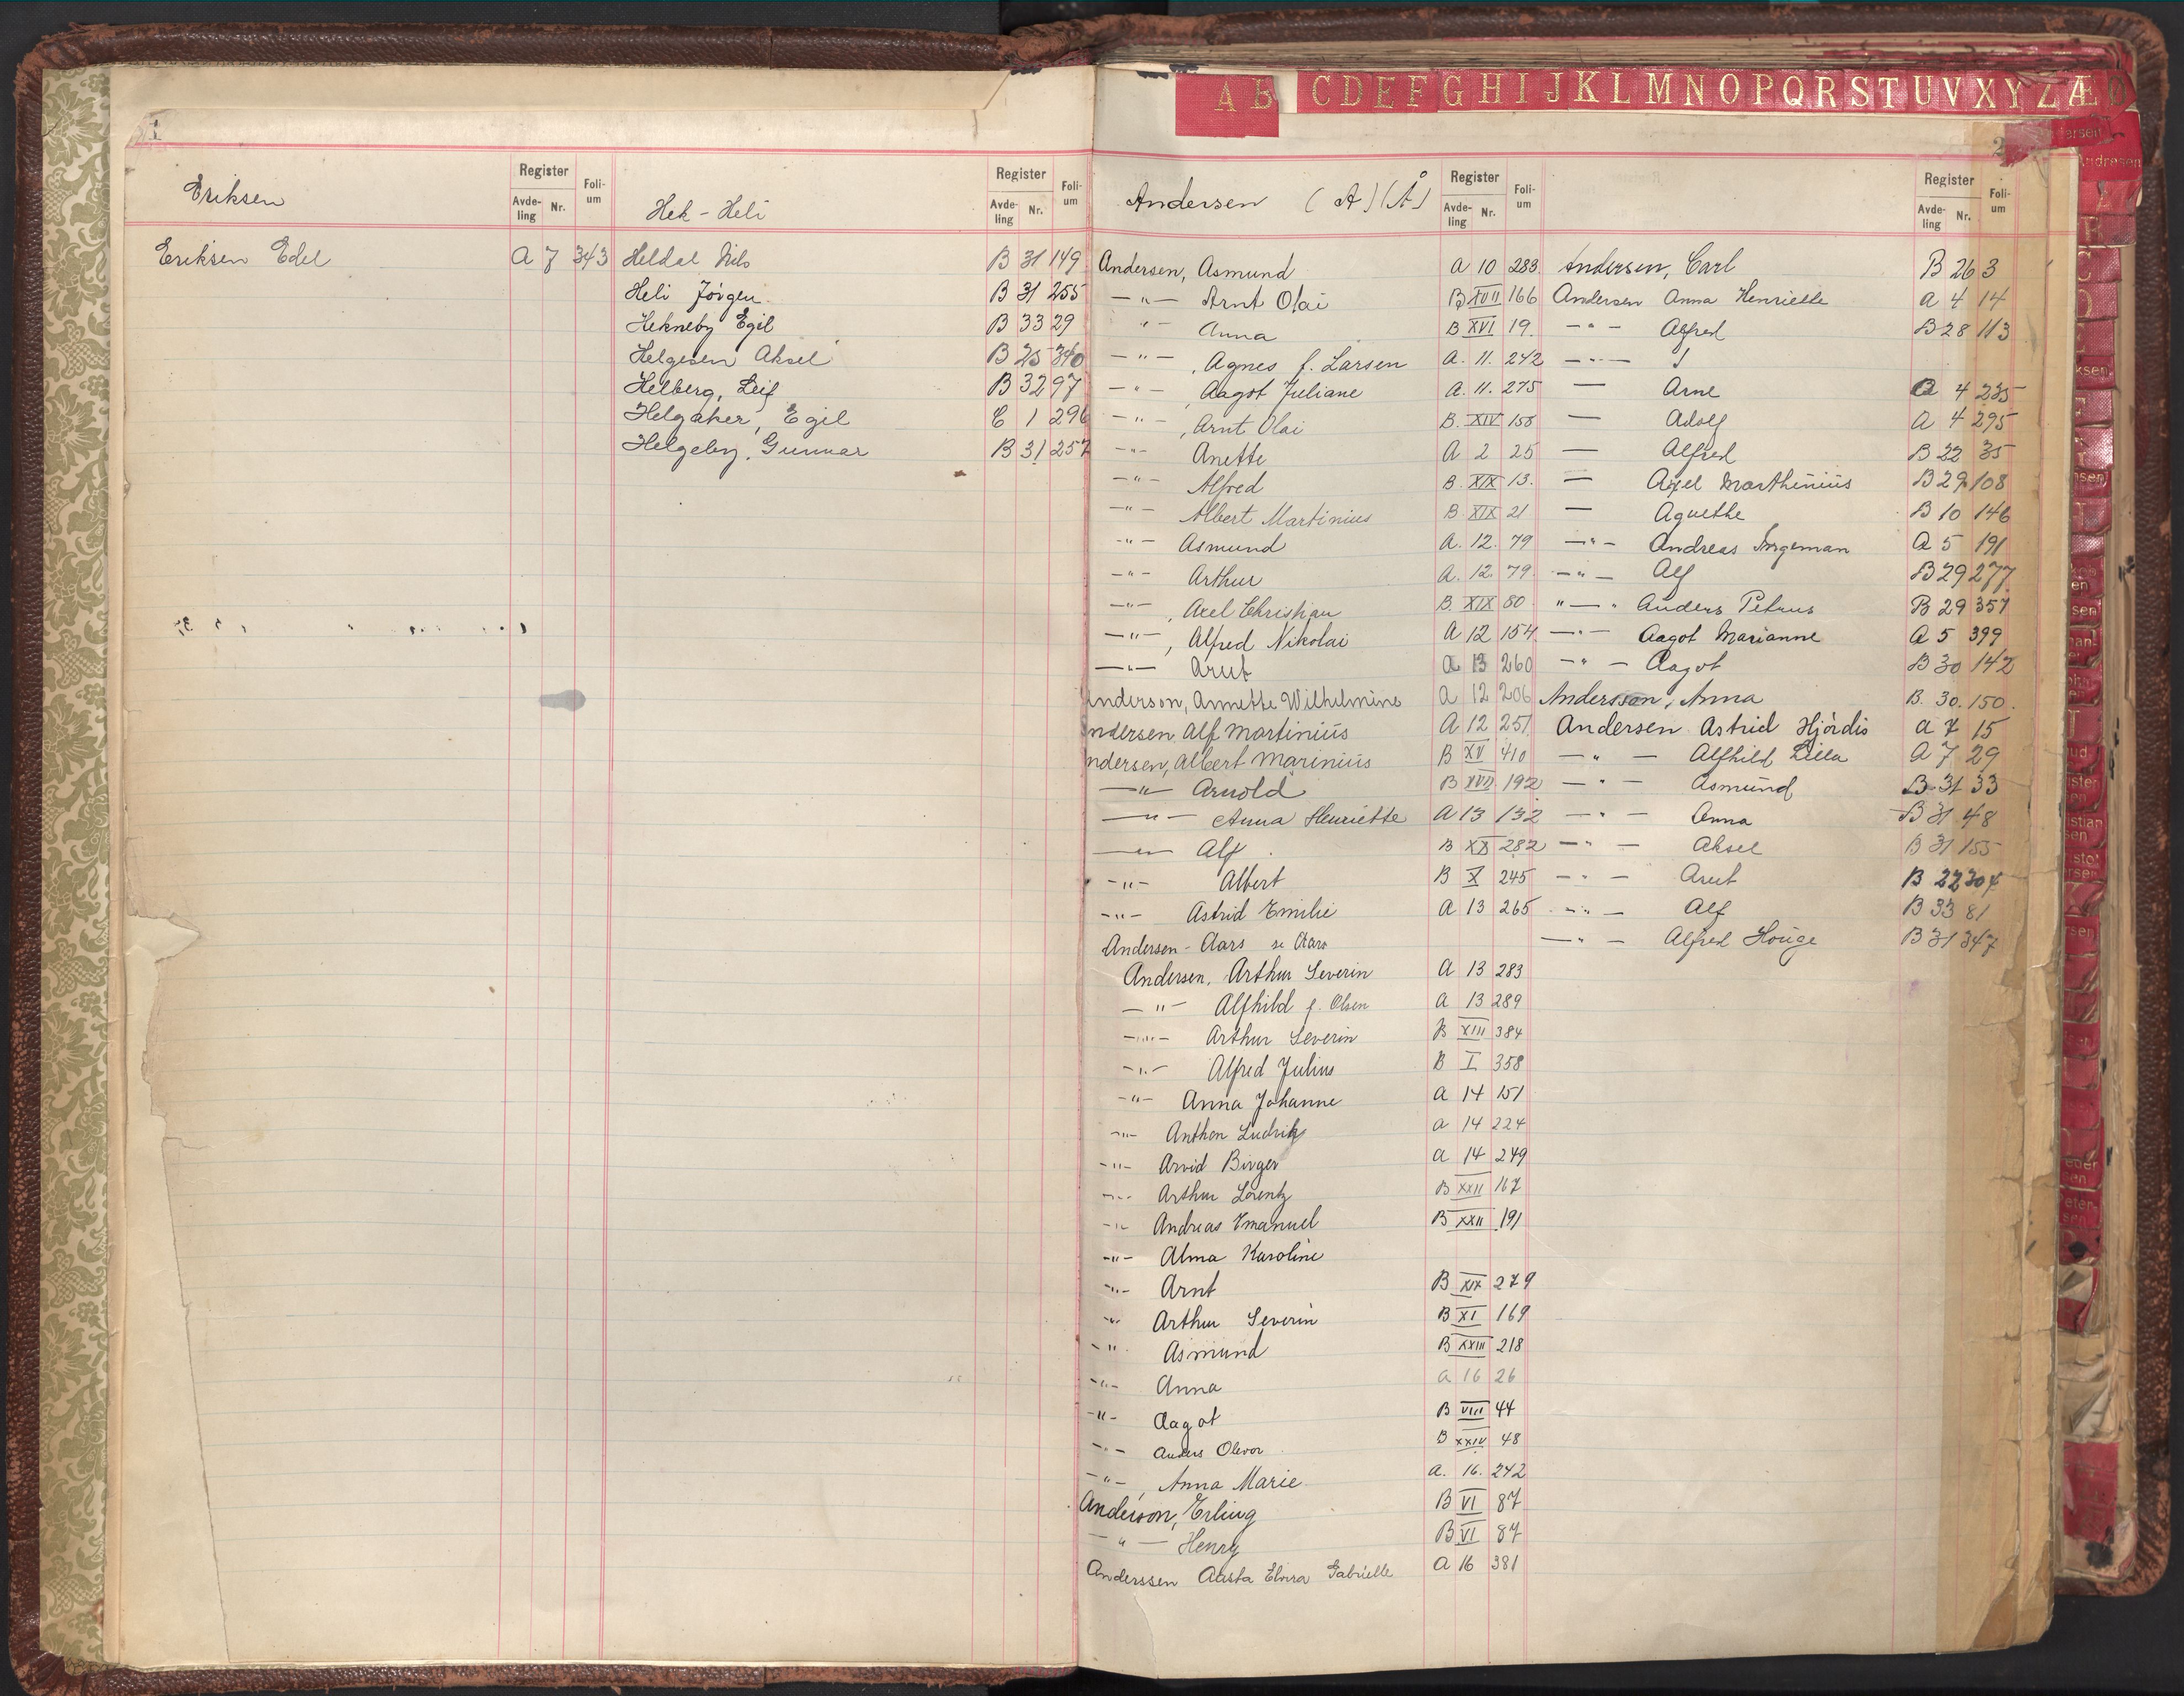 A B C D E F G H I J K L M N O P Q R S T U V X Y Z Æ Ø
Eriksen
Register
Avde-ling Nr.
Foli-um
Eriksen Edel A 7 343
Hek - Heli
Register
Avde-ling Nr.
Foli-um
Heldal Nils B 31 149
Heli Jörgen B 31 255
Hekneby Egil B 33 29
Helgesen Aksel B 25 340
Helberg, Leif B 32 97
Helgaker, Egil C 1 296
Helgeby, Gunnar B 31 257
2
Andersen (A) (Å)
Register
Avde-ling Nr.
Foli-um
Andersen, Asmund A 10 283
—"— Arnt Olai B XVII 166
"— Anna B XVI 19.
—"— , Agnes f. Larsen A. 11. 242
—"— , Aagot Juliane A. 11. 275
—"— , Arnt Olai B. XIV 158
—"— Anette A 2 25
—"— Alfred B. XIX 13.
—"— Albert Martinius B. XIX 21
—"— Asmund A. 12. 79
—"— Arthur A. 12. 79
—"— , Axel Christian B. XIX 80
—"— , Alfred Nikolai A 12 154
—"— Arnt A 13 260
Anderson, Annette Wilhelmine A 12 206
Andersen Alf Martinius A 12 251
Andersen, Albert Marinius B XV 410
—"— Arnold B XVII 192
—"— Anna Henriette A 13 132
—"— Alf B XX 282
—"— Albert B X 245
—"— Astrid Emilie A 13 265
Andersen - Aars se Aars
Andersen, Arthur Severin A 13 283
—"— Alfhild f. Olsen A 13 289
—"— Arthur Severin B XIII 384
—"— Alfred Julius B I 358
—"— Anna Johanne A 14 151
—"— Anthon Ludvik A 14 224
—"— Arvid Birger A 14 249
—"— Arthur Lorentz B XXII 167
—"— Andreas Emanuel B XXII 191
—"— Alma Karoline
—"— Arnt B XIX 279
—"— Arthur Severin B XI 169
—"— Asmund B XXIII 218
—"— Anna A 16 26
—"— Aagot B VIII 44
—"— Anders Olevor B XXIV 48
—"— , Anna Marie A. 16. 242
Anderson, Erling B VI 87
—"— Henry B VI 87
Anderssen Aasta Elvira Gabrielle A 16 381
Register
Avde-ling Nr.
Foli-um
Andersen, Carl B 26 3
Andersen Anna Henriette A 4 14
—"— Alfred B 28 113
—"—
— Arne A 4 235
— Adolf A 4 295
— Alfred B 22 35
— Axel Marthinius B 29 108
— Agnethe B 10 146
—"— Andreas Ingeman A 5 191
—"— Alf B 29 277
"—" Anders Petrus B 29 357
—"— Aagot Marianne A 5 399
—"— Aagot B 30 142
Andersson, Anna B. 30. 150.
Andersen Astrid Hjördis A 7 15
—"— Alfhild Lilla A 7 29
—"— Asmund B 31 33
—"— Anna B 31 48
—"— Aksel B 31 155
—"— Arnt B 22 304
—"— Alf B 33 81
—"— Alfred Houge B 31 347
Andresen